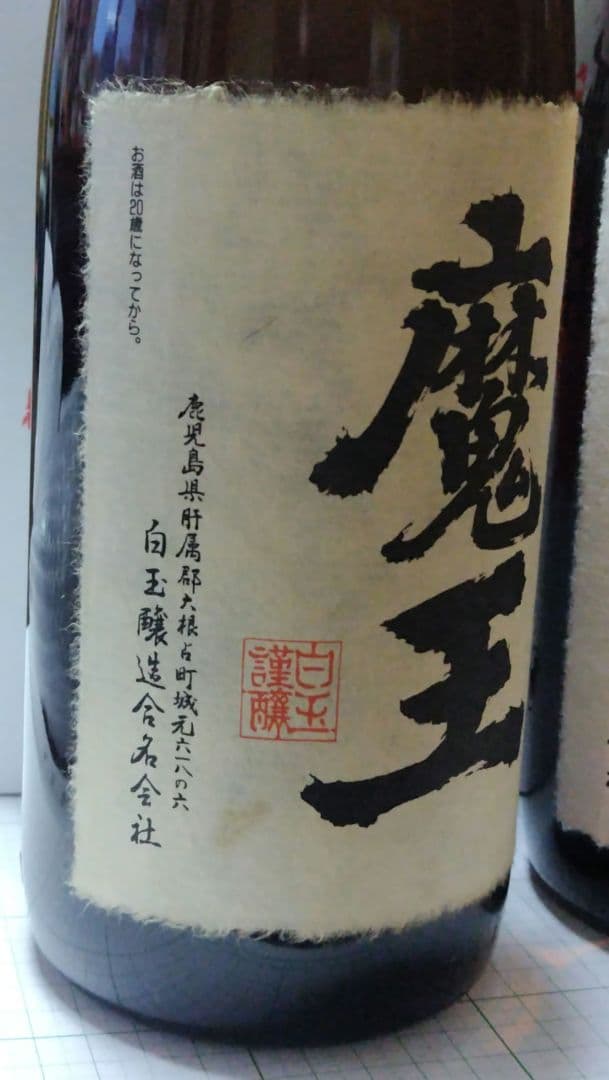 魔王
白玉
謹醸
鹿児島県肝属郡大根占町城元六一八の六
白玉醸造合名会社
お酒は20歳になってから。